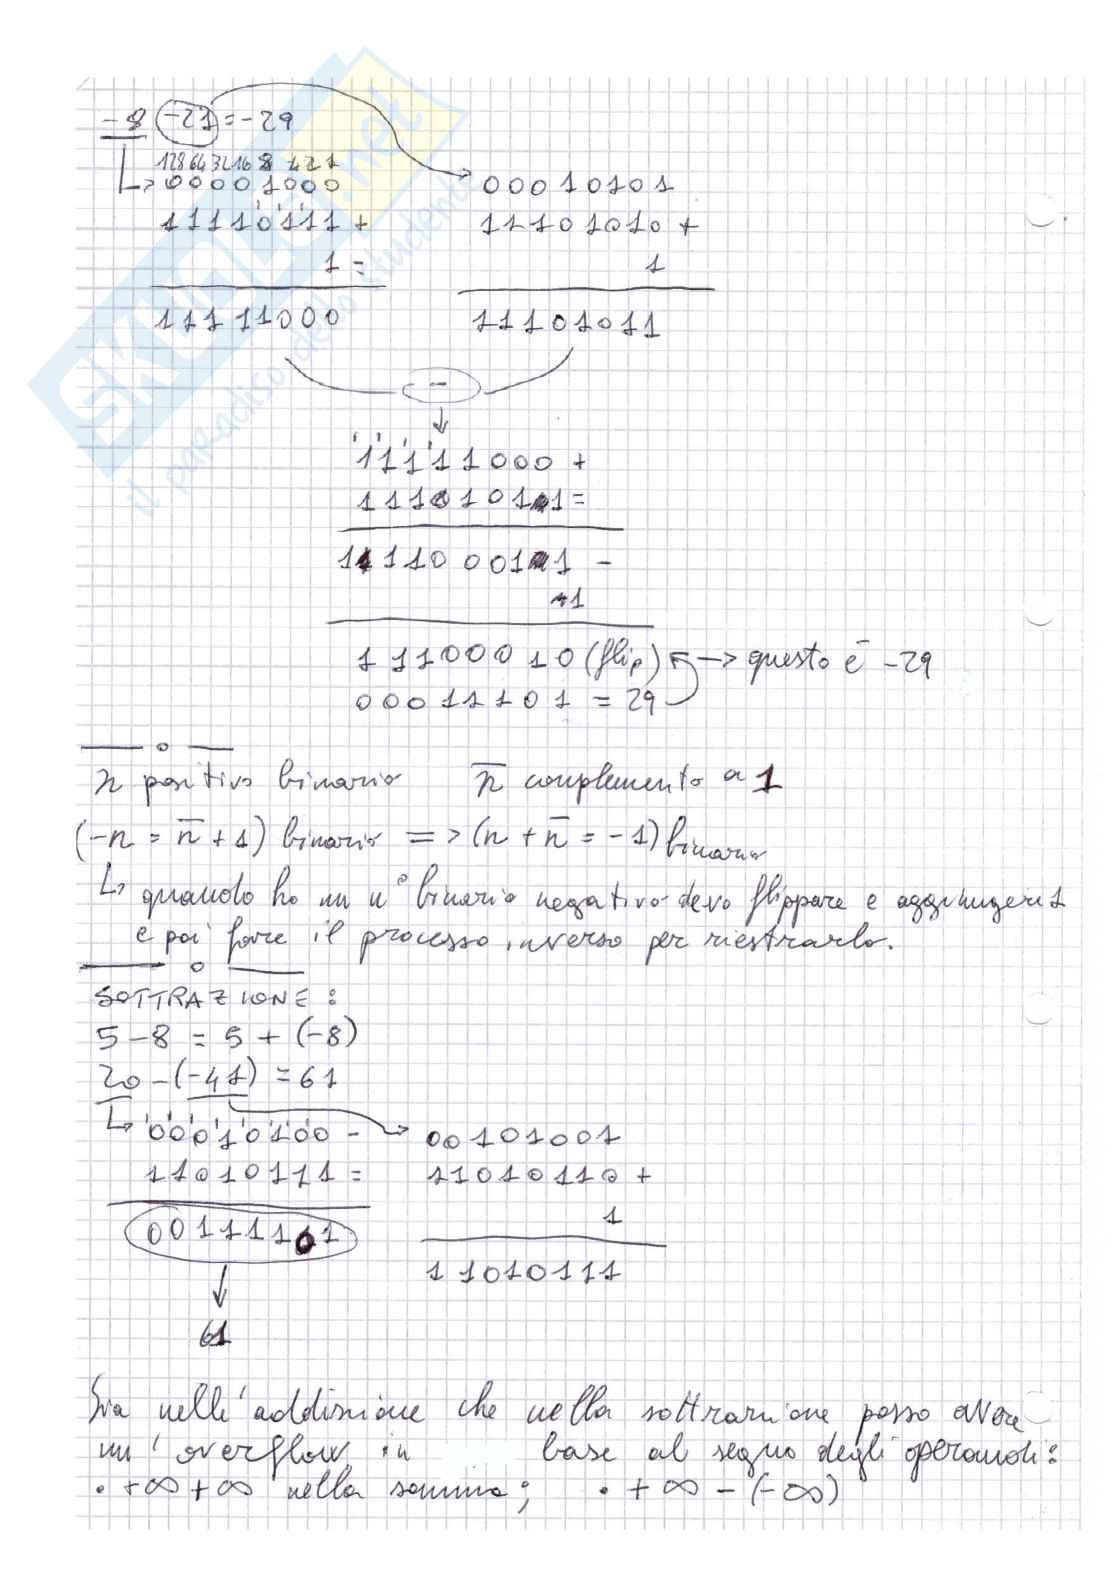 -8 -21 = -29
128 64 32 16 8 4 2 1
00001000
11110111 +
1 =
11111000
00010101
11101010 +
1
11101011
-
11111000 +
11101011 =
111100011 -
1
11100010 (flip) → questo è -29
00011101 = 29
n positivo binario n̅ complemento a 1
(-n = n̅ + 1) binario => (n + n̅ = -1) binario
↳ quando ho un n° binario negativo devo flippare e aggiungere 1
e poi fare il processo inverso per riestrarlo.
SOTTRAZIONE:
5-8 = 5 + (-8)
20 - (-41) = 61
00010100 -
11010111 =
00111101
61
00101001
11010110 +
1
11010111
Sia nell'addizione che nella sottrazione posso avere
un'overflow in base al segno degli operandi:
• +∞ +∞ nella somma; • +∞ - (-∞)
SKUOLA.net
il paradiso dello studente